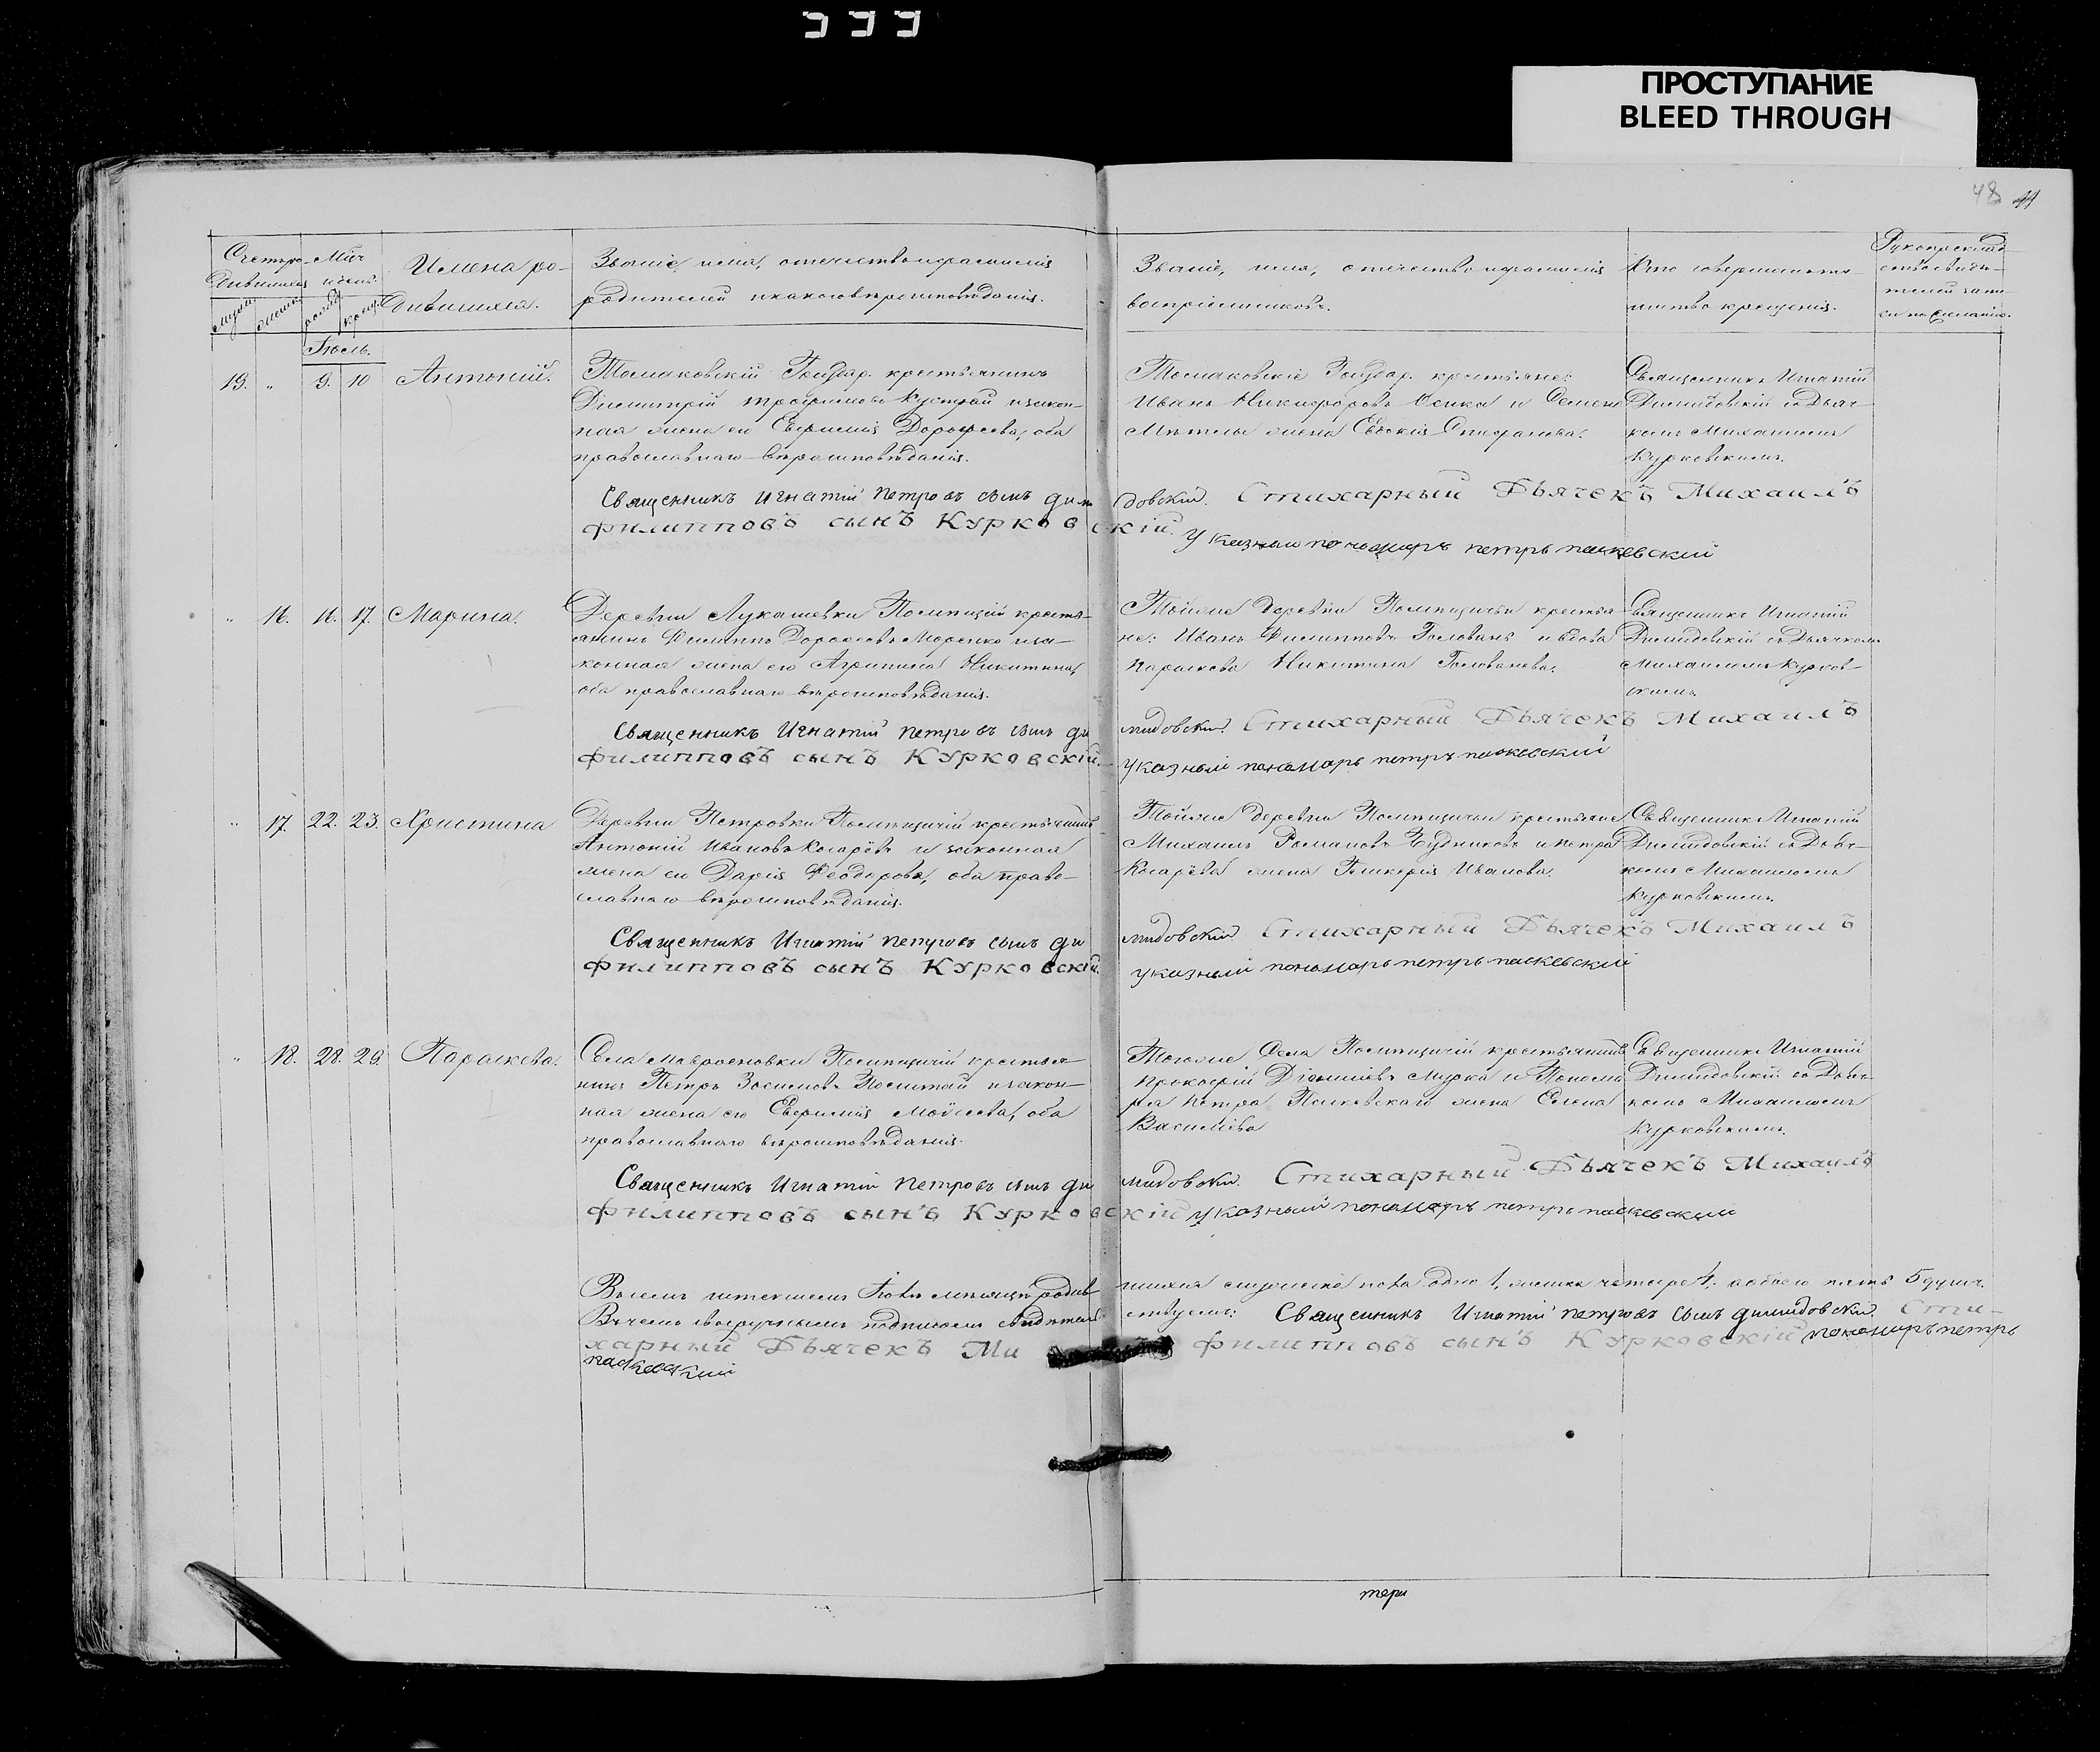 ПРОСТУПАНИЕ
BLEED THROUGH
48
Счетъ ро- Мѣс.
дившихся и день
Имена ро-
дившихся.
Званіе, имя, отечество и фамилія
родителей и какого вѣроисповѣданія.
Званіе, имя, отечество и фамилія
воспріемниковъ.
Кто совершалъ
таинство крещенія.
Рукоприкладство свидѣ-
телей запи-
си по желанію.
Іюль.
19. " 9. 10 Антоній.
Томаковскій Государ. крестьянинъ
Димитрій Трофимовъ и закон-
ная жена его Евфимія Дорофеева, оба
православнаго вѣроисповѣданія.
Томаковскіе Государ. крестьяне:
Иванъ Никифоровъ и Семена
жена Евдокія Стефанова.
Священникъ Игнатій
Димидовскій съ Дьяч-
комъ Михаиломъ
Курковскимъ.
Священникъ Игнатій Петровъ сынъ Димидовскій. Стихарный Дьячекъ Михаилъ
Филипповъ сынъ Курковскій. Указный пономарь петръ паскевскій
" 16. 16. 17. Марина.
Деревни Лукашевки Помѣщичій кресть-
янинъ Филиппъ и за-
конная жена его Агрипина Никитина,
оба православнаго вѣроисповѣданія.
Тойже деревни Помѣщичьи крестья-
не: Иванъ Филипповъ Голованъ и вдова
Параскева Никитина Голованева.
Священникъ Игнатій
Димидовскій съ Дьячкомъ
Михаиломъ Курков-
скимъ.
Священникъ Игнатій Петровъ сынъ Димидовскій. Стихарный Дьячекъ Михаилъ
Филипповъ сынъ Курковскій. Указный пономарь петръ паскевскій
" 17. 22. 23. Христина
Деревни Петровки Помѣщичій крестьянинъ
Антоній Ивановъ Косарёвъ и законная
жена его Дарія Феодорова, оба право-
славнаго вѣроисповѣданія.
Тойже деревни Помѣщичьи крестьяне
Михаилъ Романовъ и Петра
Косарёва жена Гликерія Иванова.
Священникъ Игнатій
Димидовскій съ Дьяч-
комъ Михаиломъ
Курковскимъ.
Священникъ Игнатій Петровъ сынъ Димидовскій Стихарный Дьячекъ Михаилъ
Филипповъ сынъ Курковскій. Указный пономарь петръ паскевскій
" 18. 28. 29. Параскева.
Села Помѣщичій крестья-
нинъ Петръ Зосимовъ и закон-
ная жена его Евфимія Моисеева, оба
православнаго вѣроисповѣданія.
Тогоже Села Помѣщичій крестьянинъ
Прокофій Діонисіевъ Мурка и Понома-
ря Петра Паскевскаго жена Елена
Василіева
Священникъ Игнатій
Димидовскій съ Дьяч-
комъ Михаиломъ
Курковскимъ.
Священникъ Игнатій Петровъ сынъ Димидовскій. Стихарный Дьячекъ Михаилъ
Филипповъ сынъ Курковскій Указный пономарь петръ паскевскій
Всего въ истекшемъ Іюлѣ мѣсяцѣ родившихся мужеска пола одно 1, женска четыре 4, обоего пять 5 душъ.
Въ чемъ своеручнымъ подписомъ свидѣтельствуемъ: Священникъ Игнатій Петровъ сынъ Димидовскій Сти-
харный Дьячекъ Ми Филипповъ сынъ Курковскій пономарь петръ
паскевскій